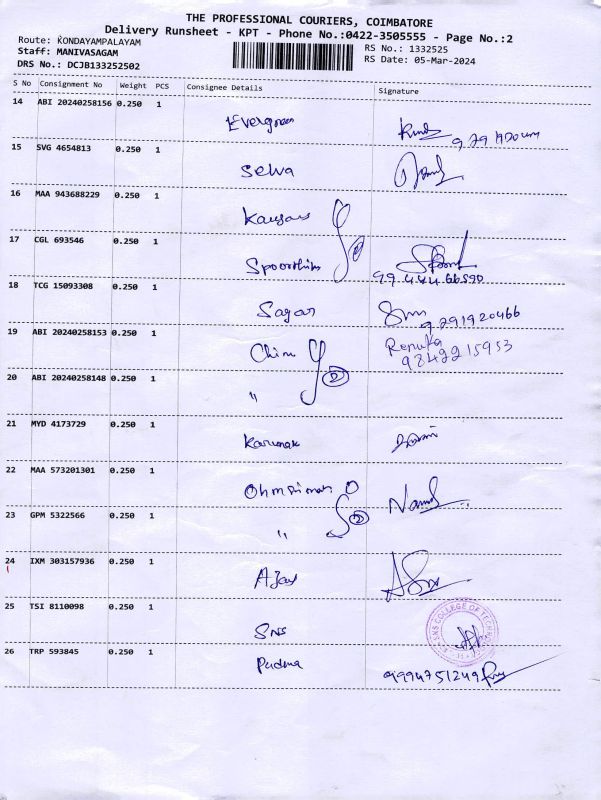 THE PROFESSIONAL COURIERS, COIMBATORE
Delivery Runsheet - KPT - Phone No.:0422-3505555 - Page No.:2
Route: KONDAYAMPALAYAM
Staff: MANIVASAGAM
DRS No.: DCJB133252502
RS No.: 1332525
RS Date: 05-Mar-2024
S No Consignment No Weight PCS Consignee Details Signature
14 ABI 20240258156 0.250 1
Evergreen
15 SVG 4654813 0.250 1
Selva
16 MAA 943688229 0.250 1
17 CGL 693546 0.250 1
99 444 66590
18 TCG 15093308 0.250 1
Sagar
9291920466
19 ABI 20240258153 0.250 1
Renuka
9842215953
20 ABI 20240258148 0.250 1
2
"
21 MYD 4173729 0.250 1
22 MAA 573201301 0.250 1
23 GPM 5322566 0.250 1
2
"
24 IXM 303157936 0.250 1
Ajay
25 TSI 8110098 0.250 1
SNS
SNS COLLEGE OF TECHNOLOGY
26 TRP 593845 0.250 1
Padma
9994751249